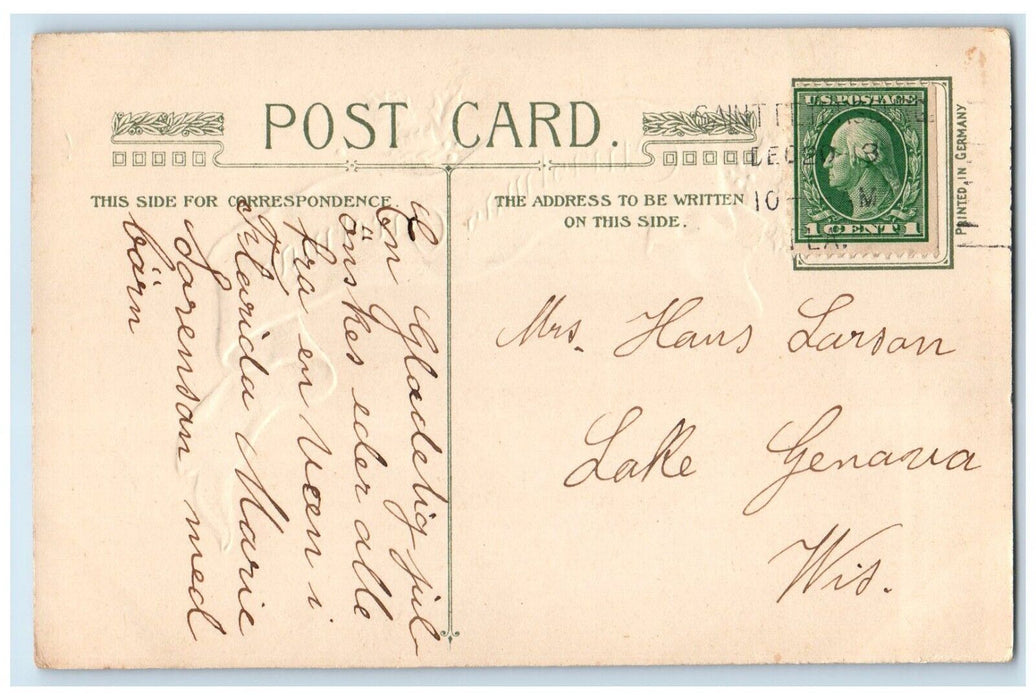 POST CARD.
THIS SIDE FOR CORRESPONDENCE.
THE ADDRESS TO BE WRITTEN
ON THIS SIDE.
U.S. POSTAGE
1 CENT 1
PRINTED IN GERMANY
SAINT
DEC
10- M
Mrs. Hans Larson
Lake Genava
Wis.
En Gladelig jul
önskes eder alle
fra en Veen i
Flarida Marie
Sorensan med
bärn